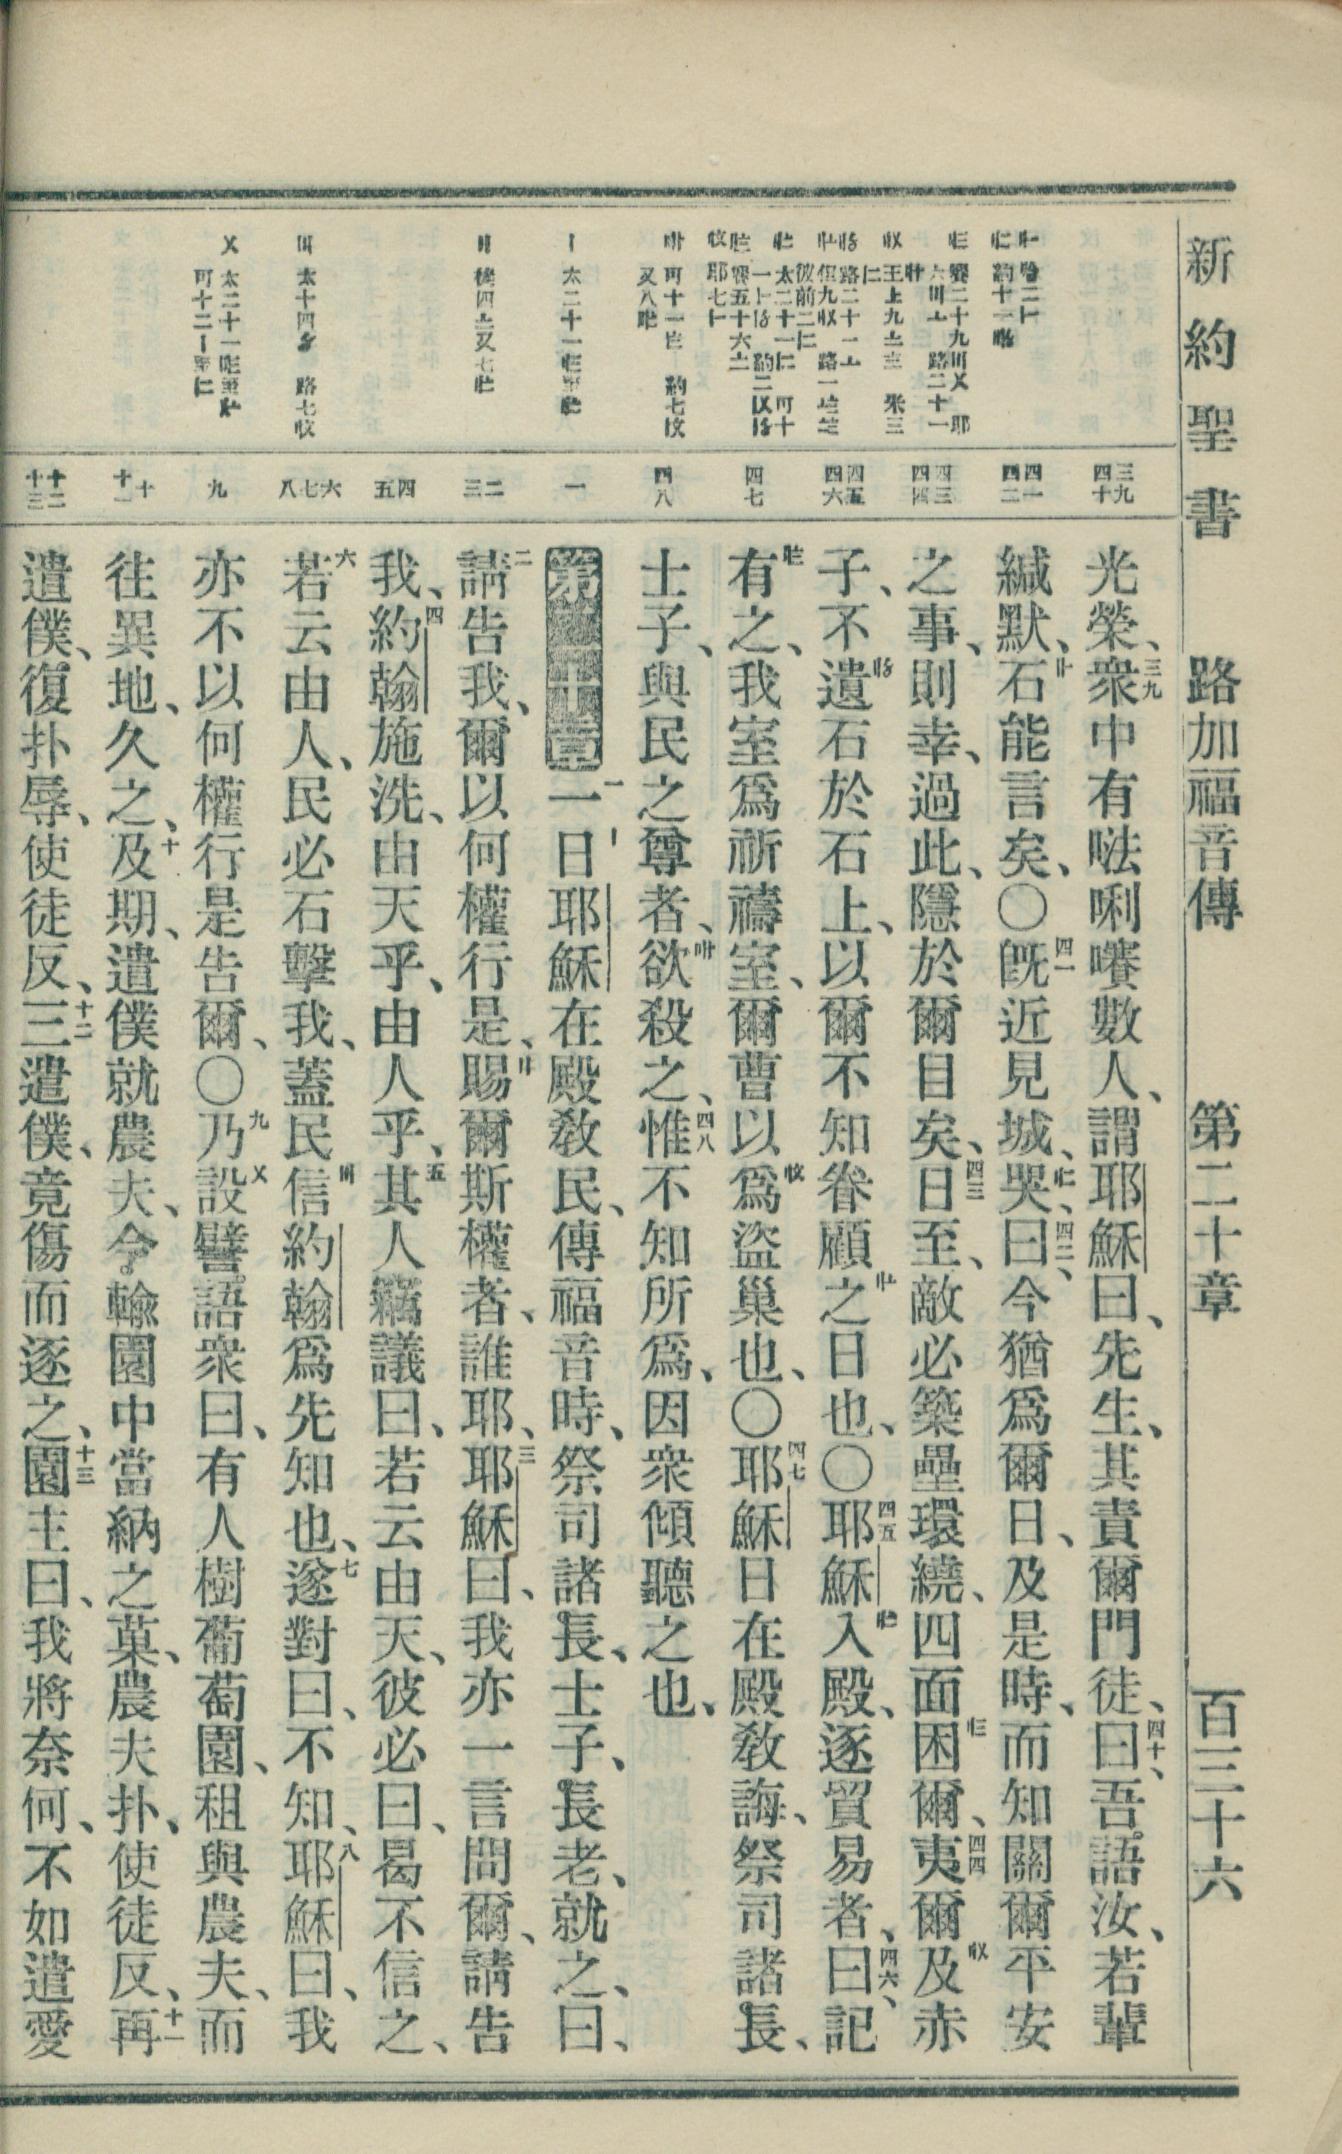 新約聖書 路加福音傳 第二十章 百三十六
三九 四十
四一 四二
四三 四四
四五 四六
四七
四八
一
二 三
四 五
六 七 八
九
十 十一
十二 十三
光榮、衆中有㗲唎㘔數人、謂耶穌曰、先生、其責爾門徒、曰、吾語汝、若輩
緘默、石能言矣、〇旣近見城、哭、曰、今猶爲爾日、及是時、而知關爾平安
之事、則幸、過此、隱於爾目矣、日至、敵必築壘環繞、四面困爾、夷爾及赤
子、不遺石於石上、以爾不知眷顧之日也、〇耶穌入殿、逐貿易者、曰、記
有之、我室爲祈禱室、爾曹以爲盜巢也、〇耶穌日在殿敎誨、祭司諸長、
士子、與民之尊者、欲殺之、惟不知所爲、因衆傾聽之也、
第二十章 一日耶穌在殿敎民、傳福音時、祭司諸長、士子、長老、就之、曰、
請告我、爾以何權行是、賜爾斯權者、誰耶、耶穌曰、我亦一言問爾、請告
我、約翰施洗、由天乎、由人乎、其人竊議曰、若云由天、彼必曰、曷不信之、
若云由人、民必石擊我、蓋民信約翰爲先知也、遂對曰、不知、耶穌曰、我
亦不以何權行是告爾、〇乃設譬語衆曰、有人樹葡萄園、租與農夫、而
往異地、久之、及期、遣僕就農夫、令輸園中當納之菓、農夫扑、使徒反、再
遣僕、復扑辱、使徒反、三遣僕、竟傷而逐之、園主曰、我將奈何、不如遣愛